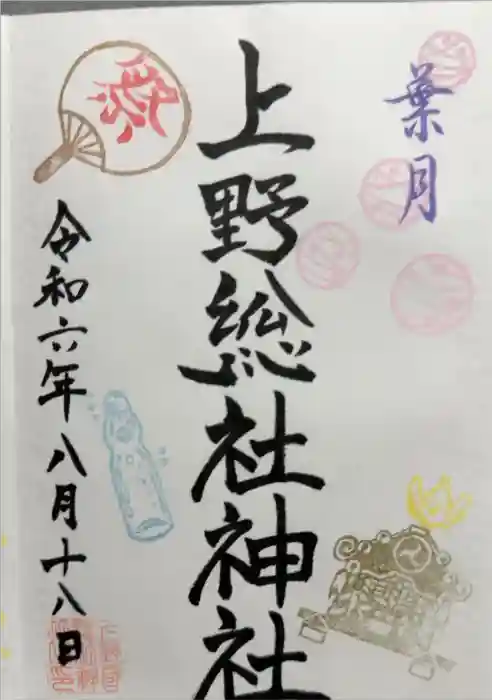 葉月
上野総社神社
令和六年八月十八日
祭